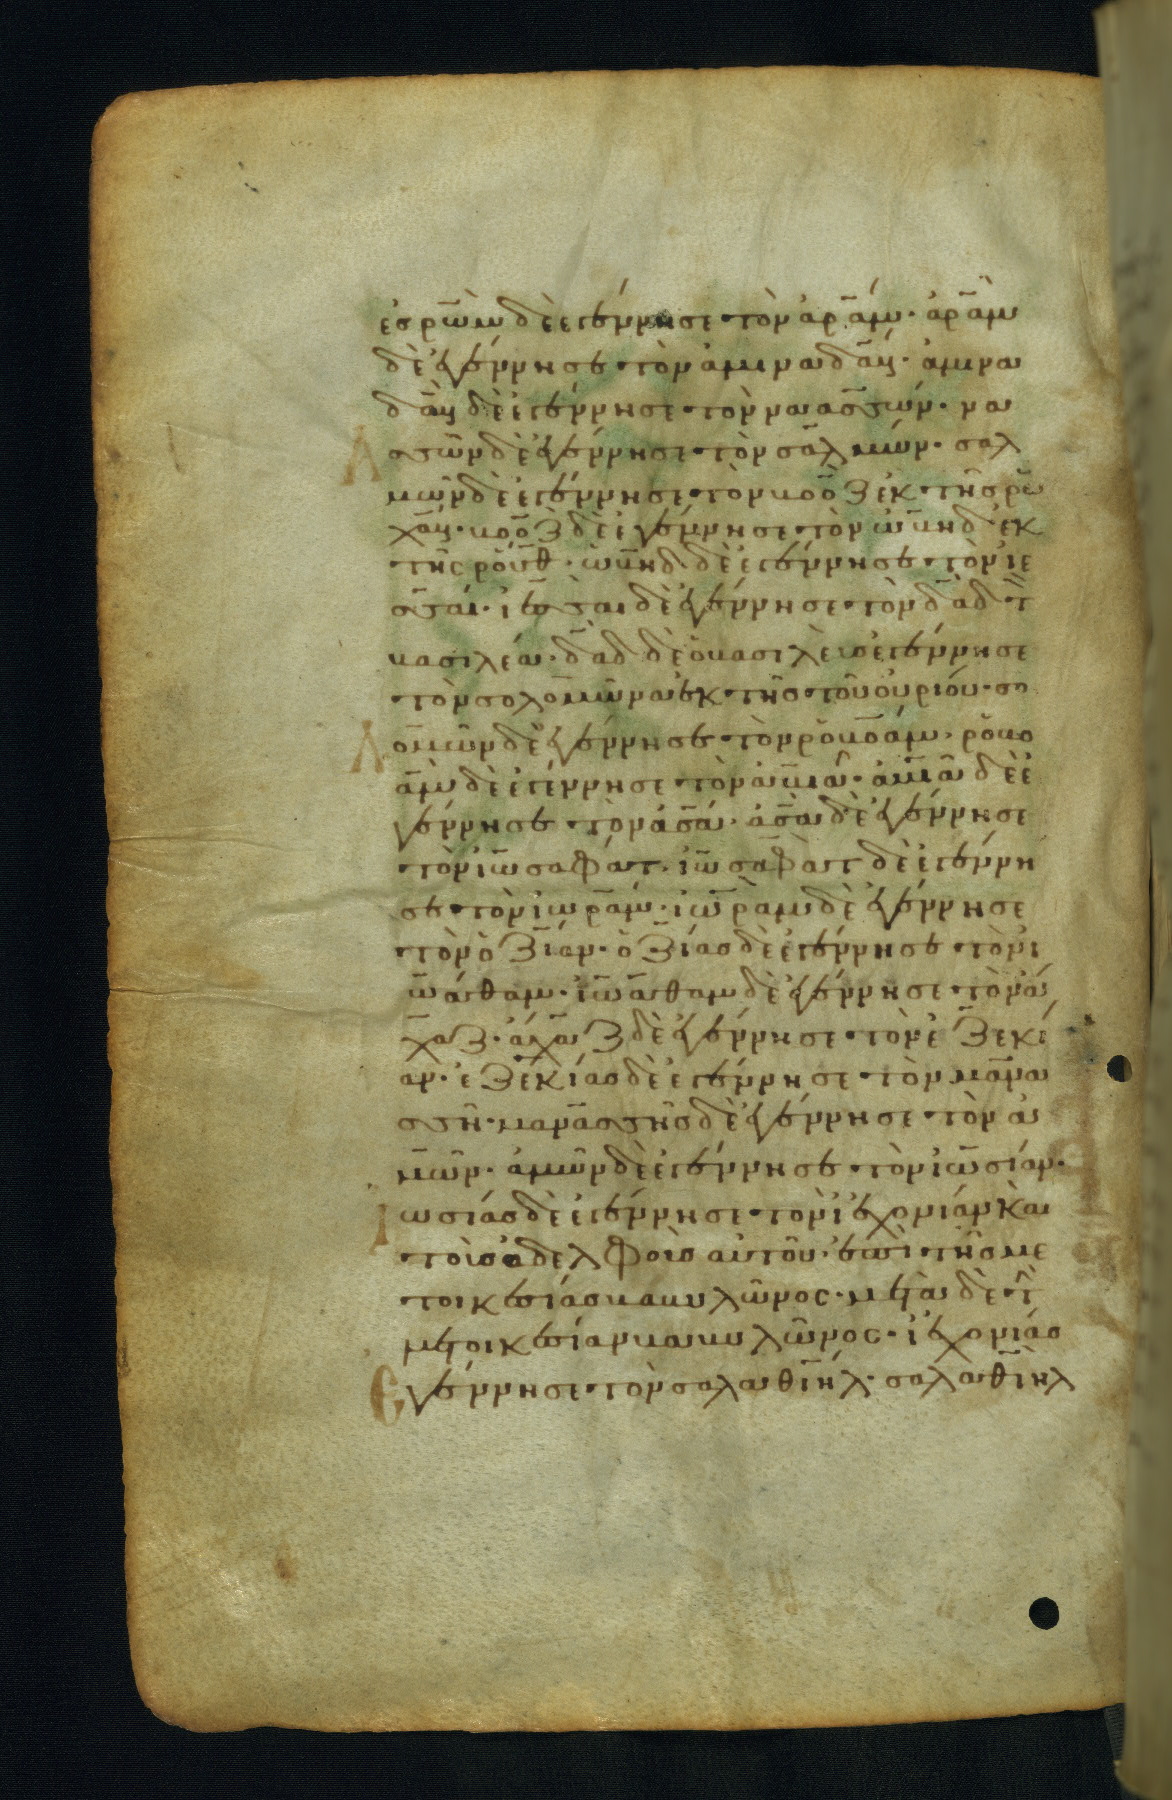 ἐσρὼμ δὲ ἐγέννησε τὸν ἀράμ· ἀρὰμ
δὲ ἐγέννησε τὸν ἀμιναδάβ· ἀμινα
δὰβ δὲ ἐγέννησε τὸν ναασσών· να
ασσὼν δὲ ἐγέννησε τὸν σαλμών· σαλ
μὼν δὲ ἐγέννησε τὸν βοὸζ ἐκ τῆς ρα
χάβ· βοὸζ δὲ ἐγέννησε τὸν ὠβὴδ ἐκ
τῆς ροὺθ· ὠβὴδ δὲ ἐγέννησε τὸν ἰε
σσαί· ἰεσσαὶ δὲ ἐγέννησε τὸν δαδ τ
βασιλέα· δαδ δὲ ὁ βασιλεὺς ἐγέννησε
τὸν σολομῶνα ἐκ τῆς τοῦ οὐρίου· σο
ομῶν δὲ ἐγέννησε τὸν ροβοάμ· ροβο
ὰμ δὲ ἐγέννησε τὸν ἀβιά· ἀβιὰ δὲ ἐ
γέννησε τὸν ἀσά· ἀσὰ δὲ ἐγέννησε
τὸν ἰωσαφάτ· ἰωσαφὰτ δὲ ἐγέννη
σε τὸν ἰωράμ· ἰωρὰμ δὲ ἐγέννησε
τὸν ὀζίαν· ὀζίας δὲ ἐγέννησε τὸν ἰ
ωάθαμ· ἰωάθαμ δὲ ἐγέννησε τὸν ἄ
χαζ· ἄχαζ δὲ ἐγέννησε τὸν ἐζεκί
αν· ἐζεκίας δὲ ἐγέννησε τὸν μανα
σσῆ· μανασσῆς δὲ ἐγέννησε τὸν ἀ
μῶν· ἀμῶν δὲ ἐγέννησε τὸν ἰωσίαν·
Ιωσίας δὲ ἐγέννησε τὸν ἰεχονίαν καὶ
τοὺς ἀδελφοὺς αὐτοῦ· ἐπὶ τῆς με
τοικεσίας βαβυλῶνος· μετὰ δὲ τὴν
μετοικεσίαν βαβυλῶνος· ἰεχονίας
Εγέννησε τὸν σαλαθιήλ· σαλαθιὴλ